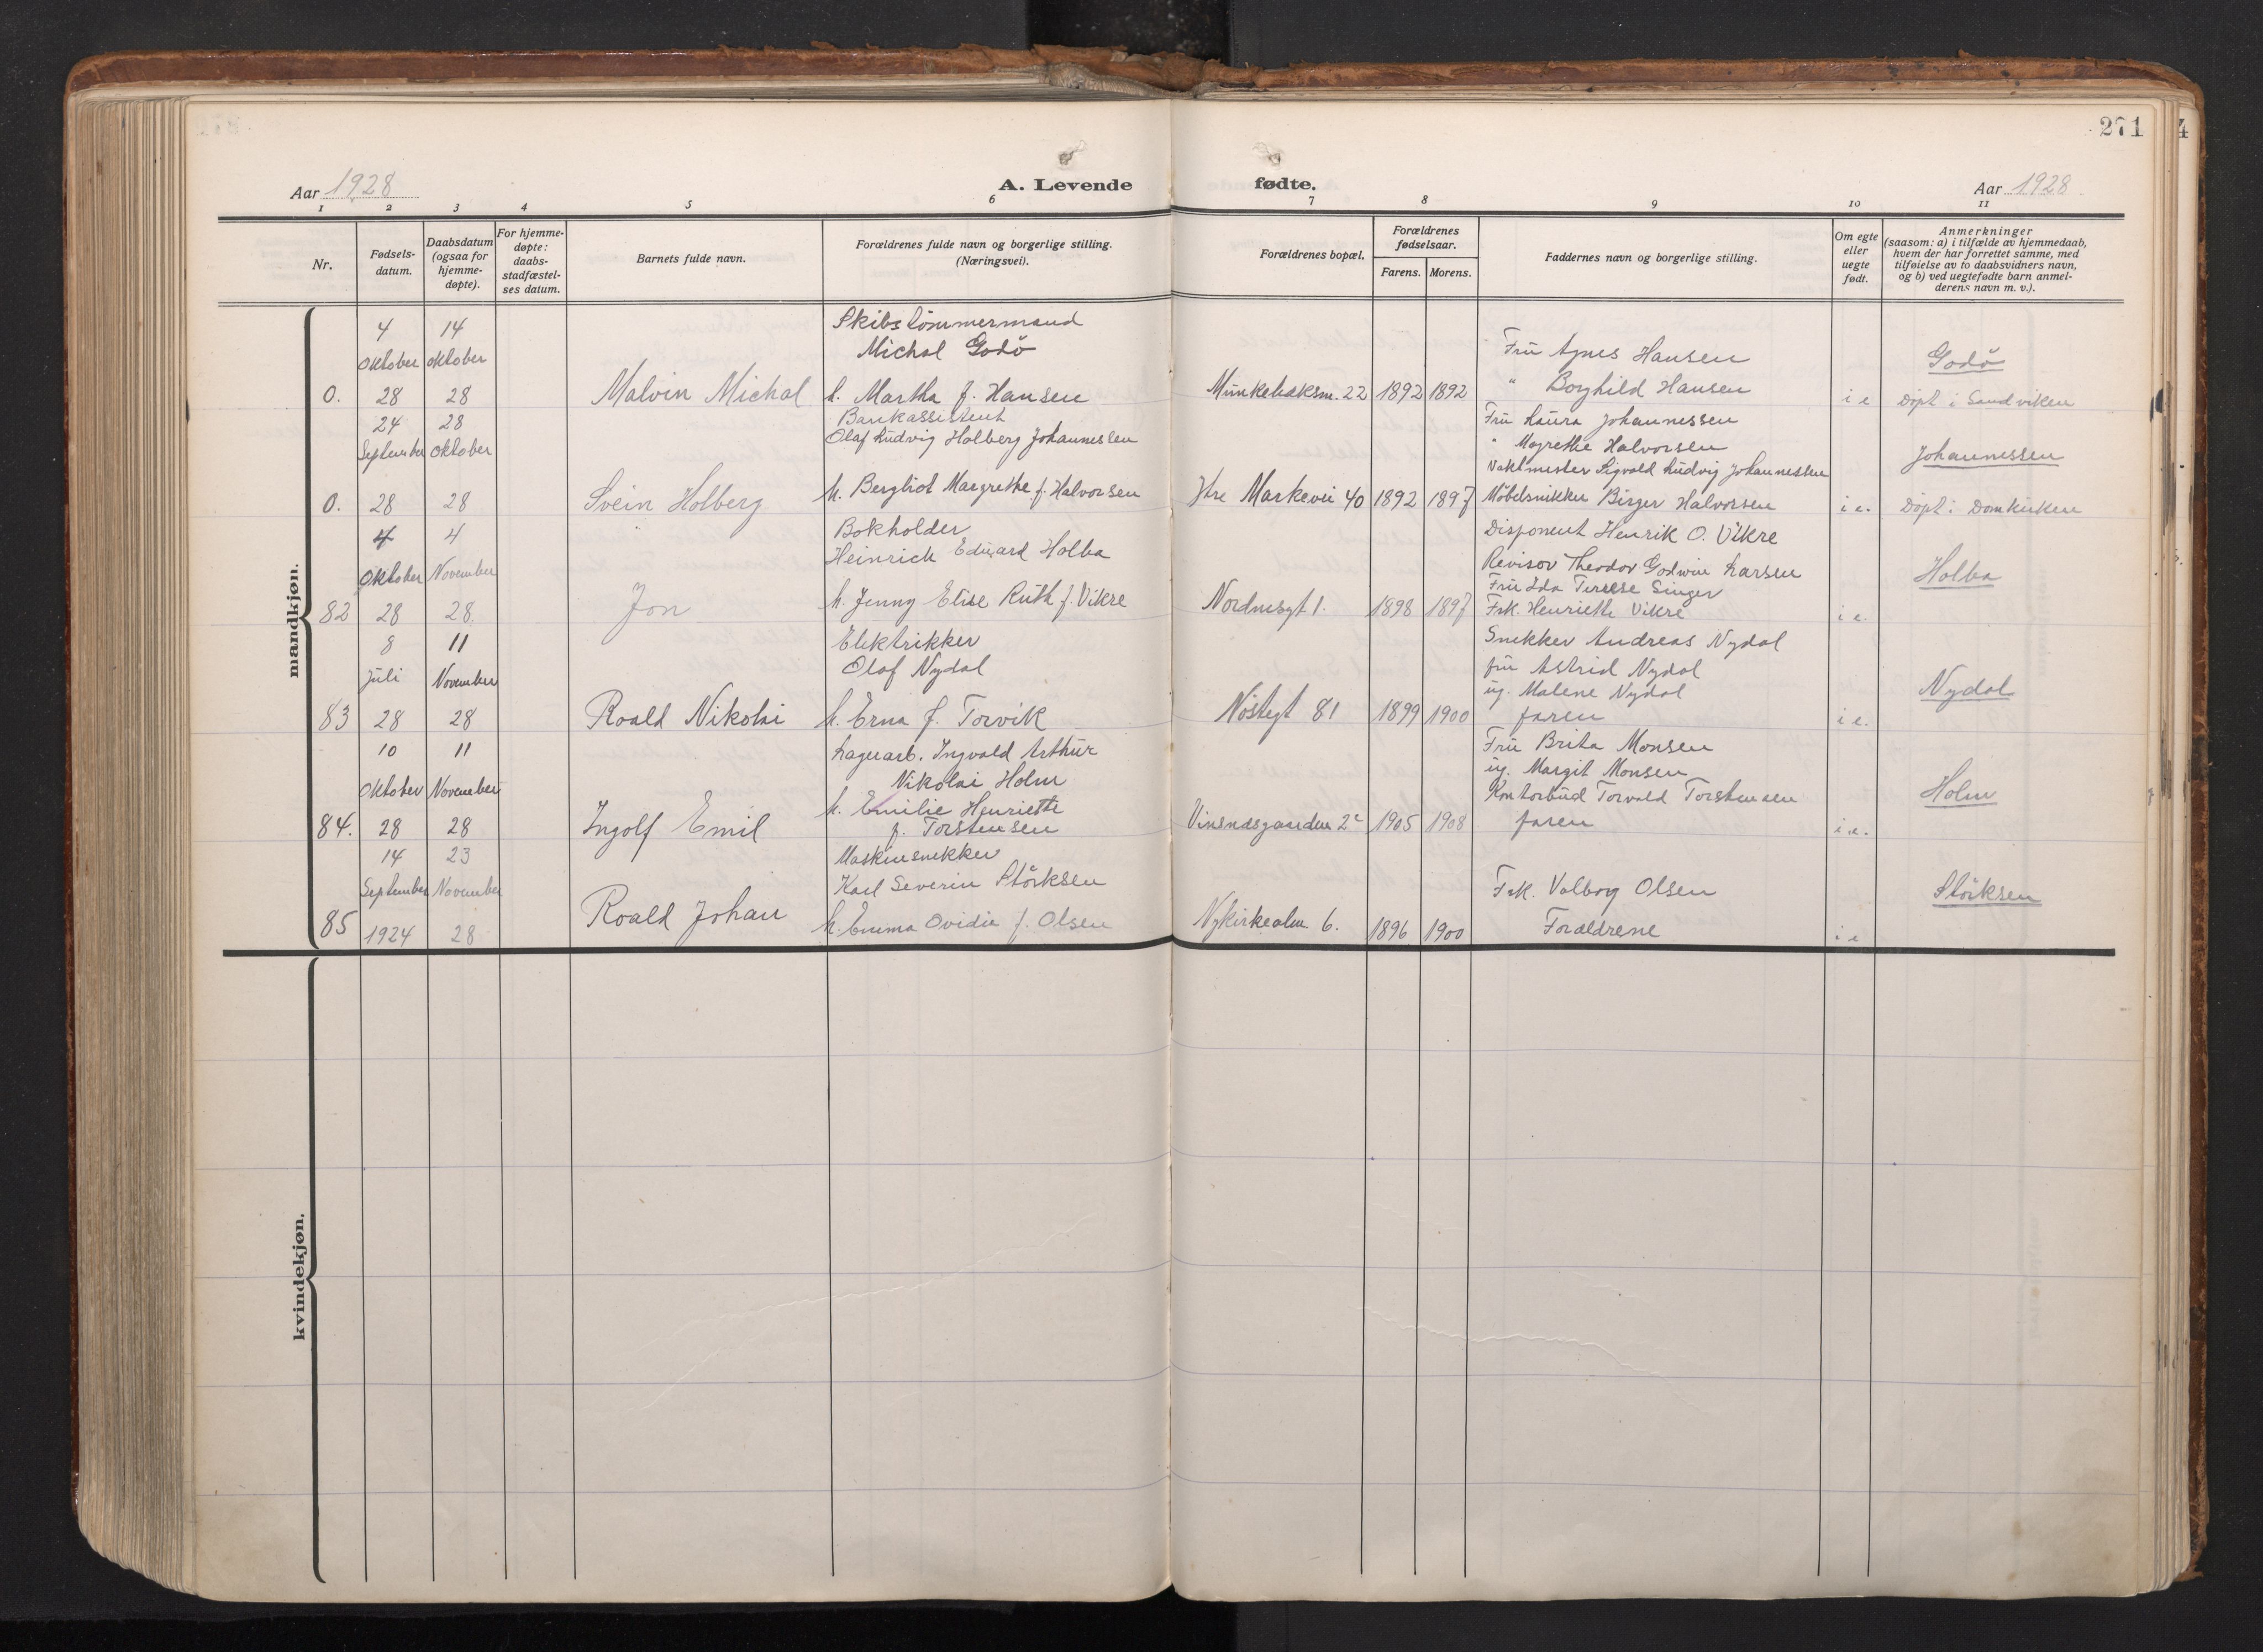 271
4
Aar 1928
A. Levende
fødte.
Aar 1928
1 2 3 4 5 6 7 8 9 10 11
Nr.
Fødsels-
datum.
Daabsdatum
(ogsaa for
hjemme-
døpte).
For hjemme-
døpte:
daabs-
stadfæstel-
ses datum.
Barnets fulde navn.
Forældrenes fulde navn og borgerlige stilling.
(Næringsvei).
Forældrenes bopæl.
Forældrenes
fødselsaar.
Farens. Morens.
Faddernes navn og borgerlige stilling.
Om egte
eller
uegte
født.
Anmerkninger
(saasom: a) i tilfælde av hjemmedaab,
hvem der har forrettet samme, med
tilføielse av to daabsvidners navn,
og b) ved uegtefødte barn anmel-
derens navn m. v.).
mandkjøn.
0.
4
Oktober
28
14
Oktober
28
Malvin Michal
Skibstömmermand
Michal Godö
h. Martha f. Hansen
Munkebæksm. 22
1892
1892
Fru Agnes Hansen
" Borghild Hansen
i e
Godö
Döpt i Sandviken
0.
24
September
28
28
Oktober
28
Svein Holberg
Bankassistent
Olaf Ludvig Holberg Johannessen
h. Bergliot Margrethe f. Halvorsen
Ytre Markevei 40
1892
1897
Fru Laura Johannessen
" Magrethe Halvorsen
Vaktmester Sigvald Ludvig Johannessen
Möbelsnikker Birger Halvorsen
i e.
Johannessen
Döpt i Domkirken
82
4
Oktober
28
4
November
28.
Jon
Bokholder
Heinrich Eduard Holba
h. Jenny Elise Ruth f. Vikre
Nordnesgt 1.
1898
1897
Disponent Henrik O. Vikre
Revisor Theodor Godwin Larsen
Fru Ida Terese Singer
Frk. Henriette Vikre
i e.
Holba
83
8
Juli
28
11
November
28
Roald Nikolai
Elektrikker
Olaf Nydal
h. Erna f. Torvik
Nöstegt 81
1899
1900
Snekker Andreas Nydal
fru Astrid Nydal
ug. Malene Nydal
faren
i e.
Nydal
84.
10
Oktober
28
11
November
28
Ingolf Emil
Lagerarb. Ingvald Arthur
Nikolai Holm
h. Emilie Henriette
f. Torstensen
Vinsnæsgaarden 2c
1905
1908
Fru Brita Monsen
ug. Margit Monsen
Kontorbud Torvald Torstensen
faren
i e.
Holm
85
14
September
1924
23
November
28
Roald Johan
Maskinsnekker
Karl Severin Störksen
h. Emma Ovidia f. Olsen
Nykirkealm. 6.
1896
1900
Frk. Valborg Olsen
Forældrene
i e
Störksen
kvindekjøn.